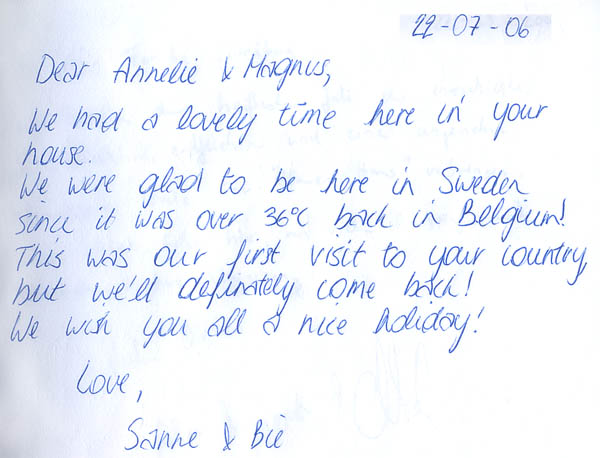 22-07-06
Dear Annelie & Magnus,
We had a lovely time here in your
house.
We were glad to be here in Sweden
since it was over 36°C back in Belgium!
This was our first visit to your country,
but we'll definately come back!
We wish you all a nice holiday!
Love,
Sanne & Bie